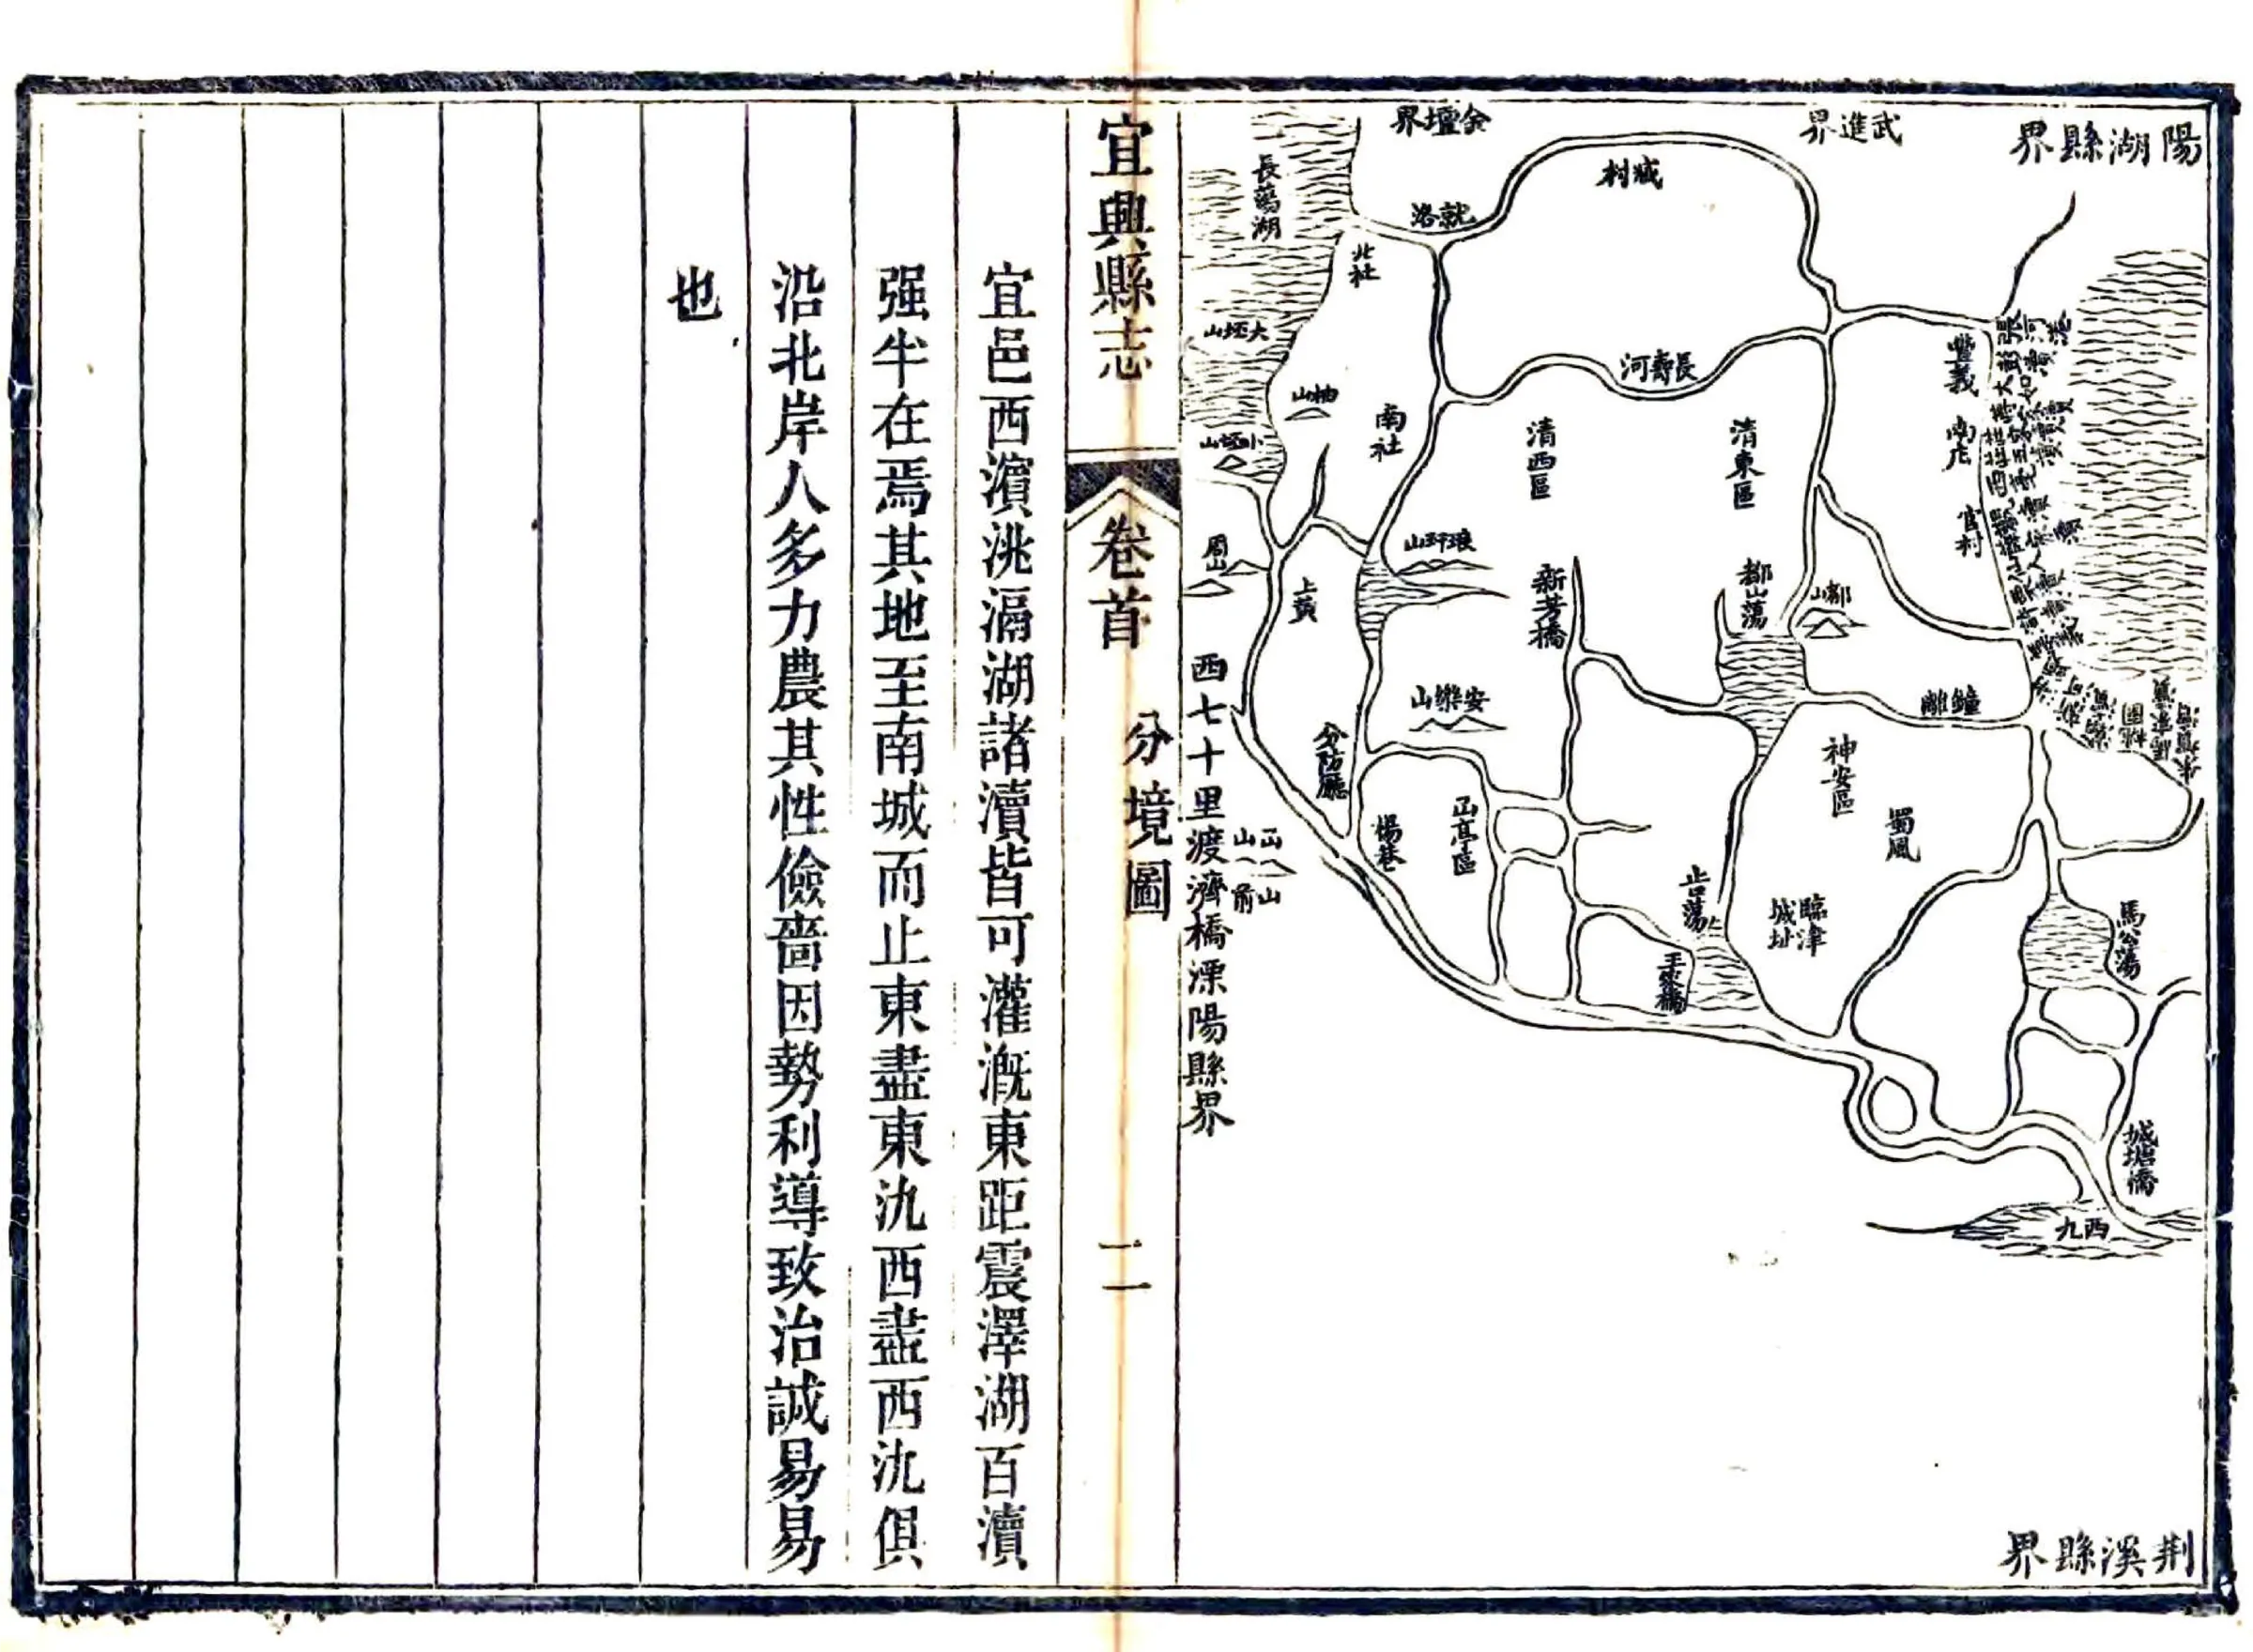 陽湖縣界
武進界
金壇界
長蕩湖
臧村
就洛
北社
大坯山
柚山
小坯山
南社
長壽河
清西區
清東區
豐義
官村
周山
上黃
琅玕山
新芳橋
都山蕩
都山
安樂山
鐘離
分防廳
神安區
蜀風
楊巷
山亭區
臨津
城址
馬公蕩
王家橋
城塘橋
西九
荆溪縣界
西七十里渡濟橋溧陽縣界
宜興縣志
卷首
分境圖
二
宜邑西濵洮滆湖諸瀆皆可灌溉東距震澤湖百瀆
强半在焉其地至南城而止東盡東氿西盡西氿俱
沿北岸人多力農其性儉嗇因勢利導致治誠易易
也